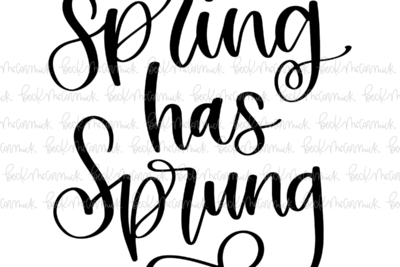 Spring
has
Sprung